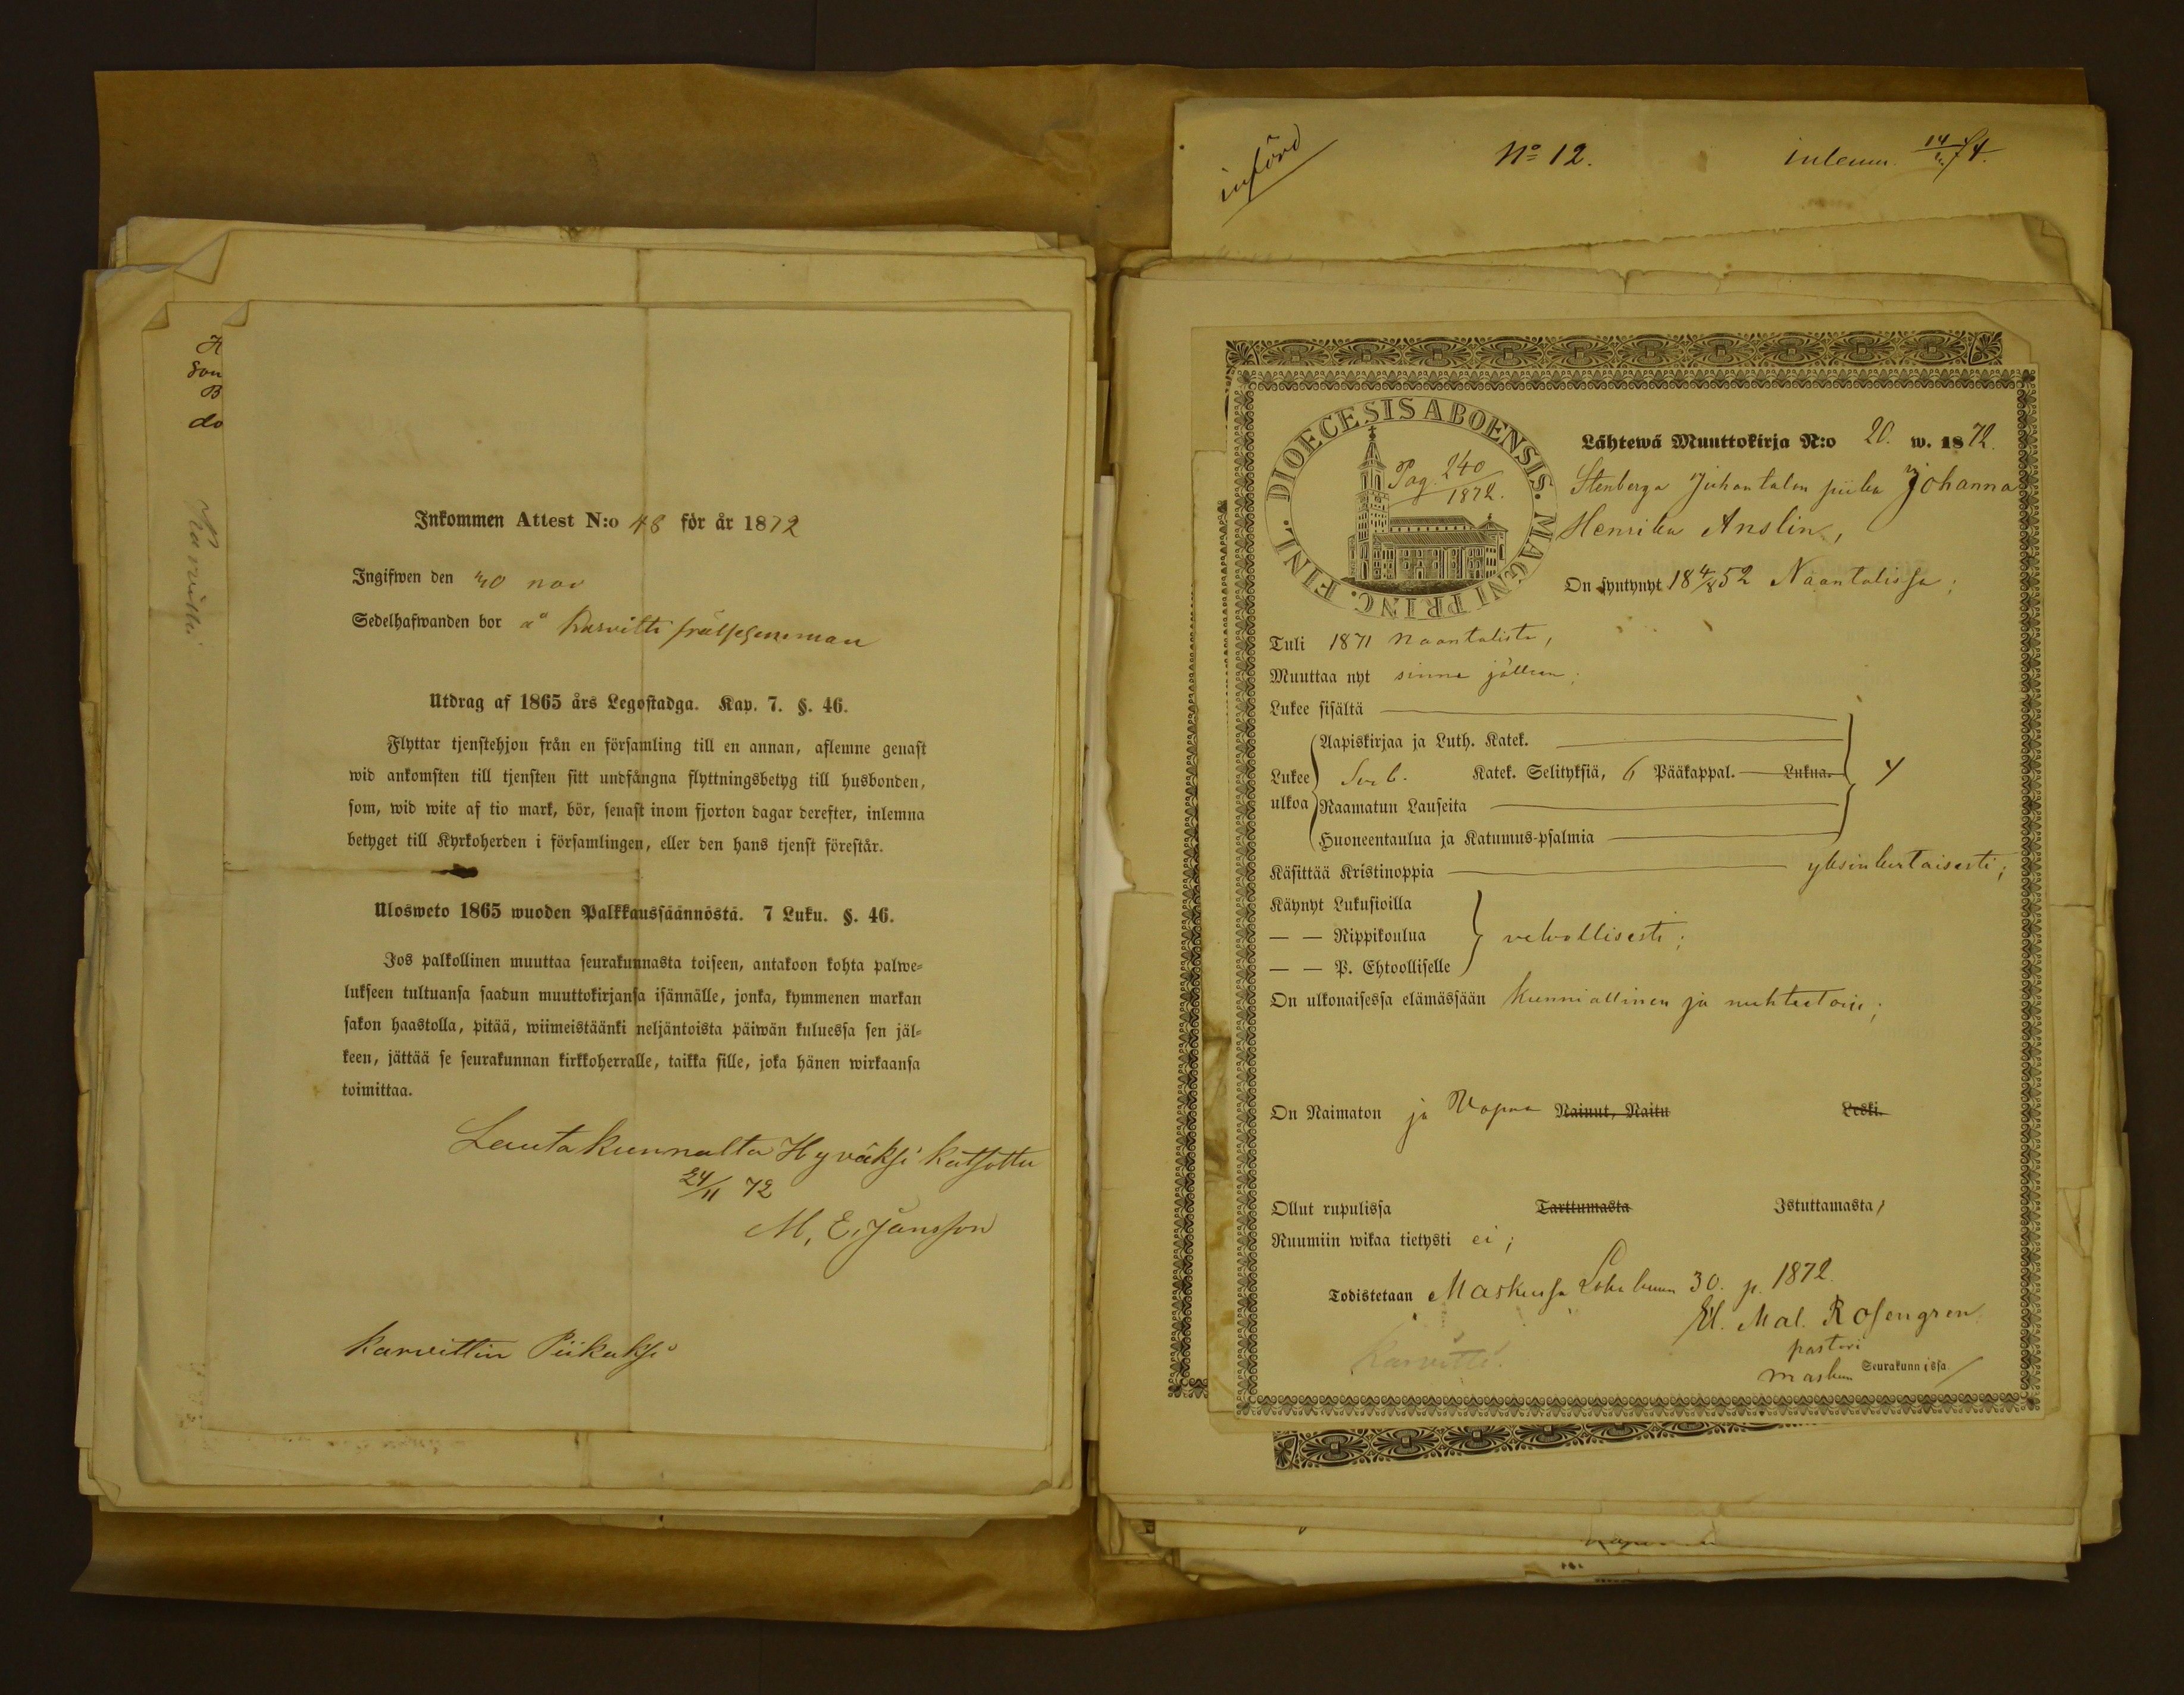 H
son
B
do
Karvitti
Inkommen Attest N:o 48 för år 1872
Ingifwen den 30 nov
Sedelhafwanden bor å Karvitti frälsehemman
Utdrag af 1865 års Legostadga. Kap. 7. §. 46.
Flyttar tjenstehjon från en församling till en annan, aflemne genast
wid ankomsten till tjensten sitt undfångna flyttningsbetyg till husbonden,
som, wid wite af tio mark, bör, senast inom fjorton dagar derefter, inlemna
betyget till Kyrkoherden i församlingen, eller den hans tjenst förestår.
Ulosweto 1865 wuoden Palkkaussäännöstä. 7 Luku. §. 46.
Jos palkollinen muuttaa seurakunnasta toiseen, antakoon kohta palwe-
lukseen tultuansa saadun muuttokirjansa isännälle, jonka, kymmenen markan
sakon haastolla, pitää, wiimeistäänki neljäntoista päiwän kuluessa sen jäl-
keen, jättää se seurakunnan kirkkoherralle, taikka sille, joka hänen wirkaansa
toimittaa.
Lautakunnalta Hyväksi katsottu
24/11 72
M. E. Jansson
Karvittin Piikaksi
införd
No 12.
inlemn. 14/74.
DIOECESIS ABOENSIS. MAGNI PRINC. FINL.
Pag. 240
1872.
Lähtewä Muuttokirja N:o 20. w. 1872.
Stenberga Juhantalon piika Johanna
Henrika Anslin,
On syntynyt 18 4/8 52 Naantalissa;
Tuli 1871 Naantalista,
Muuttaa nyt sinne jälleen;
Lukee sisältä
Aapiskirjaa ja Luth. Katek.
Lukee ulkoa Sveb. Katek. Selityksiä, 6 Pääkappal. Lukua.
Raamatun Lauseita
Huoneentaulua ja Katumus-psalmia
Käsittää Kristinoppia yksinkertaisesti;
Käynyt Lukusioilla
— — Rippikoulua velvollisesti;
— — P. Ehtoolliselle
On ulkonaisessa elämässään kunniallinen ja nuhteetoin;
On Naimaton ja Vapaa Nainut, Naitu Leski.
Ollut rupulissa Tarttumasta Istuttamasta;
Ruumiin wikaa tietysti ei;
Todistetaan Maskussa Loka kuun 30. p. 1872.
Kl. Mal. Rosengren
pastori
Maskun Seurakunnissa
Karvitti.